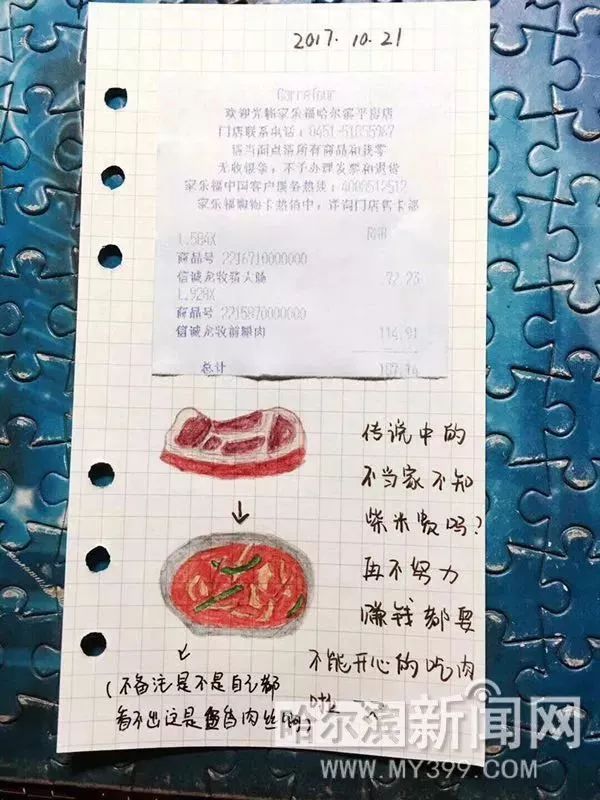 2017. 10. 21
Carrefour
欢迎光临家乐福哈尔滨平房店
门店联系电话：0451-51835987
请当面点清所有商品和找零
无收银条，不予办理发票和退货
家乐福中国客户服务热线：4006012512
家乐福购物卡热销中，详询门店售卡部
1.584X
商品号 2216710000000
信诚龙牧猪大肠 72.23
1.928X
商品号 2215870000000
信诚龙牧前腿肉 114.91
总计
传说中的
不当家不知
柴米贵吗？
再不努力
赚钱都要
不能开心的吃肉
啦
(不备注是不是自己都
看不出这是鱼香肉丝
哈尔滨新闻网
WWW.MY399.COM